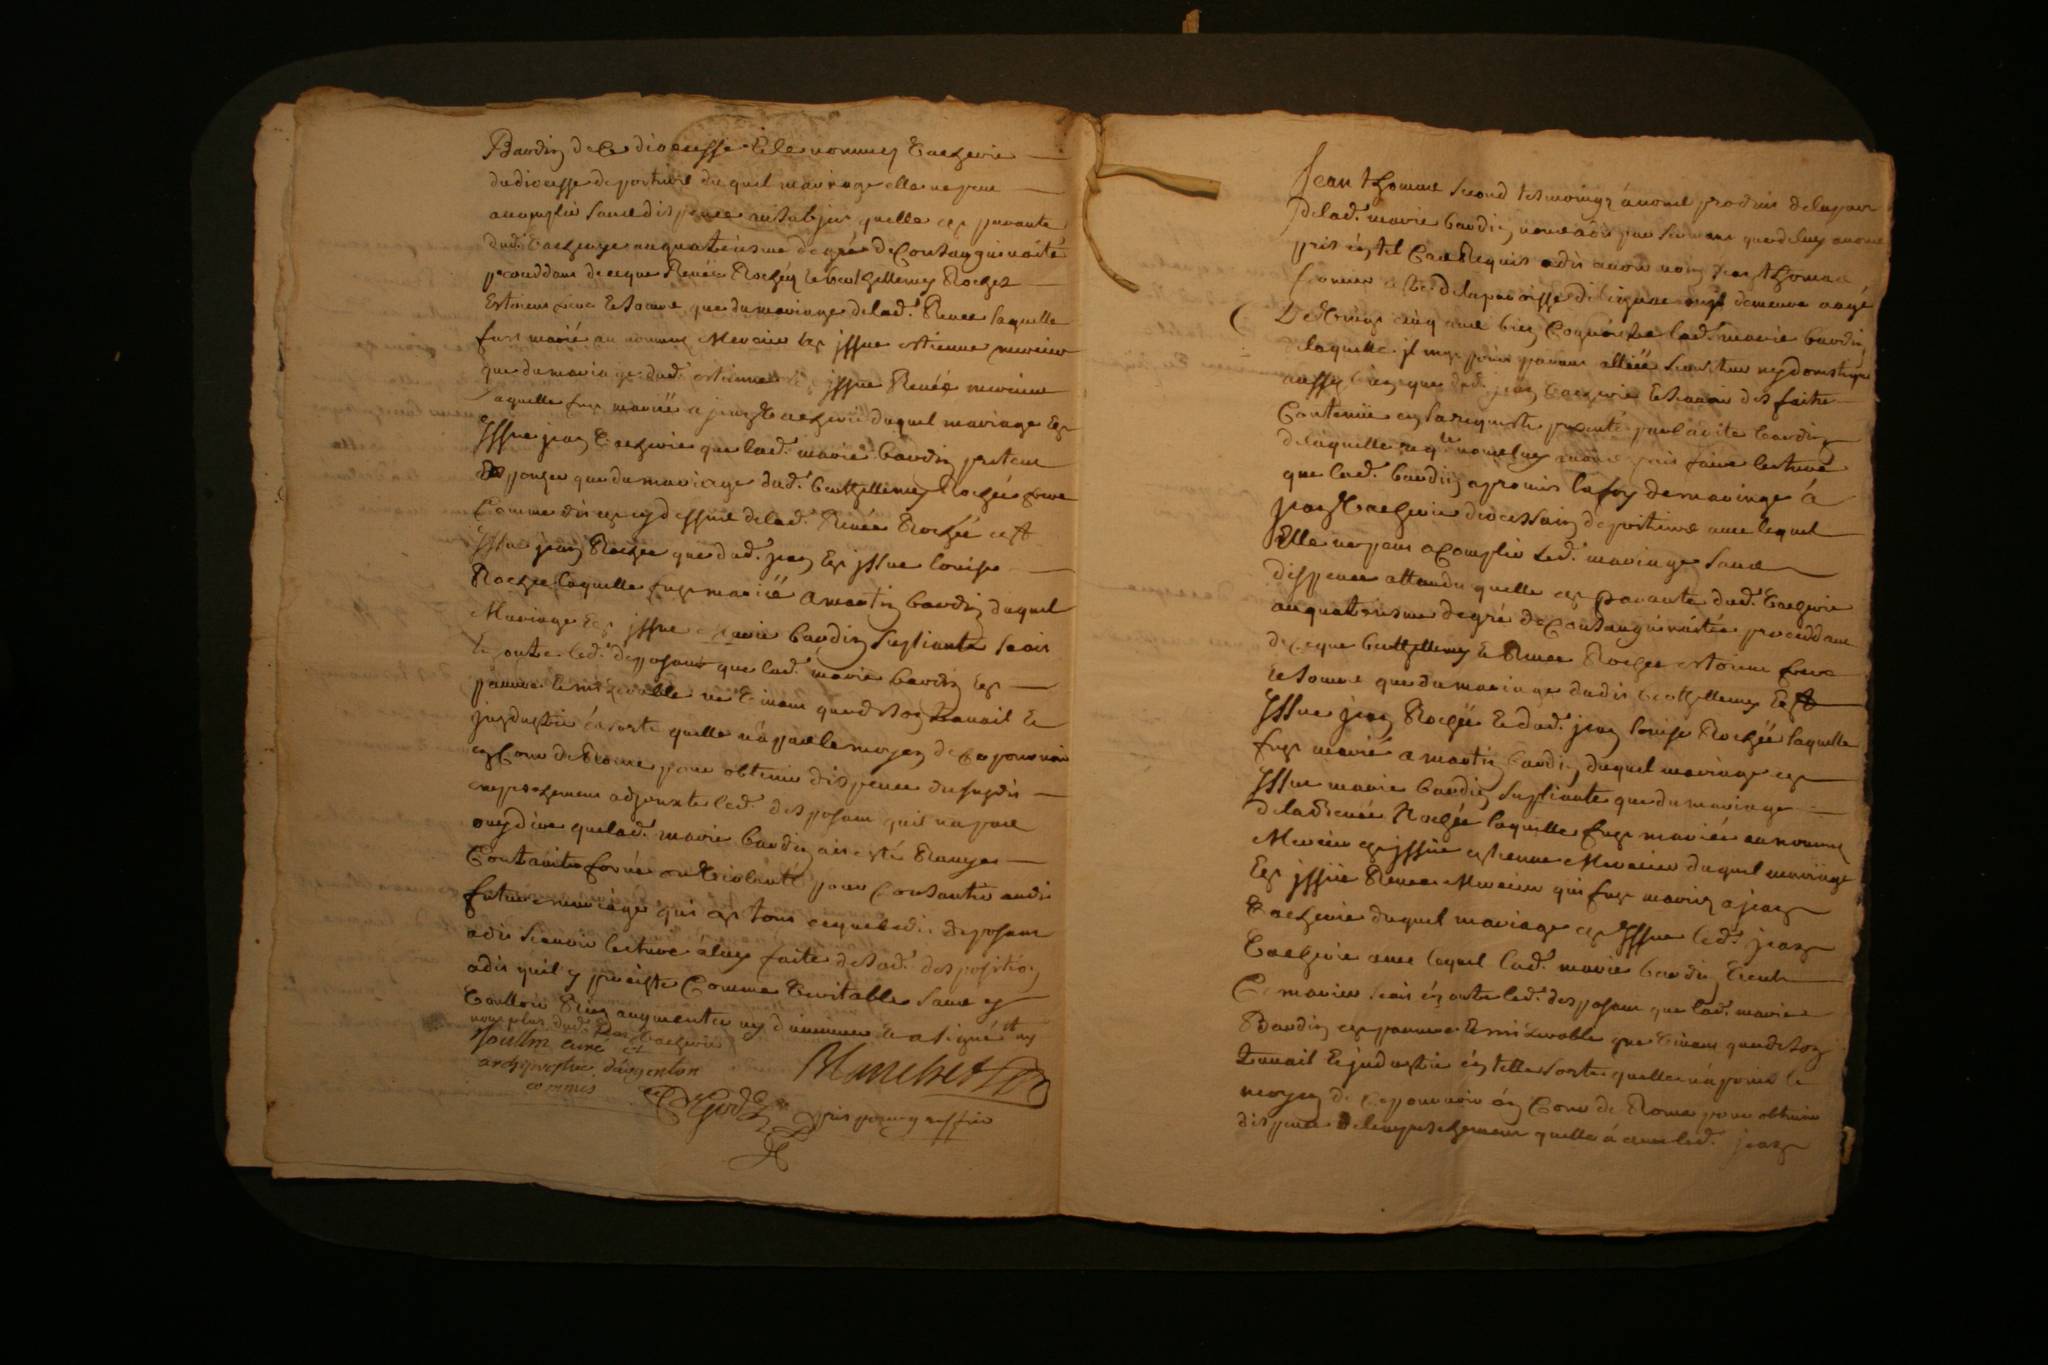 Baudin de ce diocesse & le nommé Vacherie
du diocesse de poitiers duquel mariage elle ne peut
acomplir sans dispence autsubjet quelle est parante
dud. Vacherye au quatriesme degré de Consanguinitté
proceddant de ce que Renée Rochéz & berthellemy Rochez
Estoient frere & soeur que du mariage de lad. Renee laquelle
fust marié au nommé Mercier est jssue estienne mercier
que du mariage dud. estienne est jssue Renée mercier
Laquelle fust mariée a jean Vacherie duquel mariage Est
Jssue jean Vacherie que lad. marie baudin pretent
Espouser que du mariage dud. berthellemy Rochée frere
Comme dit est cy dessus de lad. Renée Rochée est
Jssue jean Rochée que dud. jean Est jssue louise
Rochee laquelle fust mariée a martin baudin duquel
Mariage Est jssue marie baudin supliante scait
En outre led. depposant que lad. marie baudin Est
pauvre & mizerable ne Vivant que de son travail &
jndustrie en sorte quelle n'a pas le moyen de ce pourvoir
en Cour de Rome pour obtenir dispence du susdit
empeschement adjouxte led. despposant quil na pas
ouy dire que lad. marie baudin ait esté
Contrainte forcée ou Violanté pour Consantir audit
futur mariage qui est tout ce que ledit depposant
a dit scavoir lecture à luy faite de sad. desposition
a dit quil y preciste Comme Veritable sans y
Voulloir Rien augmenter ny diminuer & a signé
non plus dud. jean Vacherie
Joullin curé et
archiprestre d'argenton
commis
Blanchet
pris pour greffier
Jean thomme second tesmoing à nous produit de la part
de lad. marie baudin nous avons pris serment que de luy avons
pris en tel Cas Requis a dit avoir nom jean thomas
de la paroisse y demeure aagé
De Vingt cinq ans bien Cognoistre lad. marie baudin
de laquelle jl nest point parant allié serviteur ny domestique
aussy bien que dud. jean Vacherie & scavoir les faits
Contenüe en la requeste presanté par la dite baudin
de laquelle reqte nous luy avons fait faire lecture
que lad. baudin a promis la foy de mariage à
jean Vacherie diocessain de poitiers avec lequel
Elle ne peut acomplir Led. mariage sans
disppence attandu quelle est parante dud. Vacherie
au quatriesme degré de Consanguinittée proceddant
de ce que berthellemy & Renee Rochee estoient frere
& soeur que du mariage dudit berthellemy Est
Jssue jean Rochée & dud. jean louise Rochée laquelle
fust marié a martin baudin duquel mariage est
Jssue marie baudin supliante que du mariage
de lad. Renée Rochée laquelle fust mariée au nommé
Mercier est jssüe estienne Mercier duquel marriage
Est jssüe Renee Mercier qui fust mariée a jean
Vacherie duquel mariage est Jssue led. jean
Vacherie avec lequel lad. marie baudin Veut
Ce marier scait en outre led. despposant que lad. marie
Baudin est pauvre & mizerable que Vivant que de son
travail & jndustrie en telle sorte quelle n'a point le
moyen de ce pourvoir en Cour de Rome pour obtenir
dispence de lempeschement quelle à avec led. jean